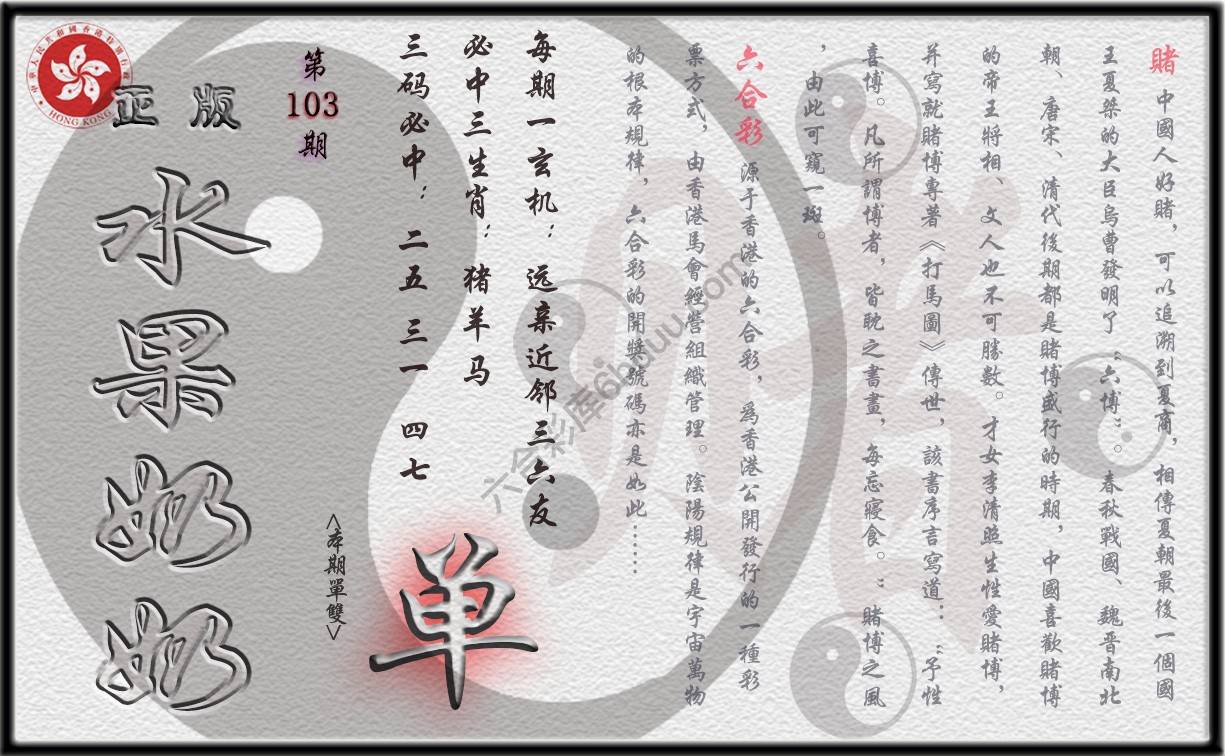 賭 中國人好賭，可以追溯到夏商，相傳夏朝最後一個國
王夏桀的大臣烏曹發明了“六博”。春秋戰國、魏晋南北
朝、唐宋、清代後期都是賭博盛行的時期，中國喜歡賭博
的帝王將相、文人也不可勝數。才女李清照生性愛賭博，
并寫就賭博專著《打馬圖》傳世，該書序言寫道：“予性
喜博。凡所謂博者，皆耽之書畫，每忘寢食。”賭博之風
，由此可窺一斑。
六合彩 源于香港的六合彩，爲香港公開發行的一種彩
票方式，由香港馬會經營組織管理。陰陽規律是宇宙萬物
的根本規律，六合彩的開獎號碼亦是如此……
每期一玄机：远亲近邻三六友
必中三生肖：猪羊马
三码必中：二五 三一 四七
单
<本期單雙>
第
103
期
正版
水果奶奶
中華人民共和國香港特別行政區
HONG KONG
六合彩库6hduu.com